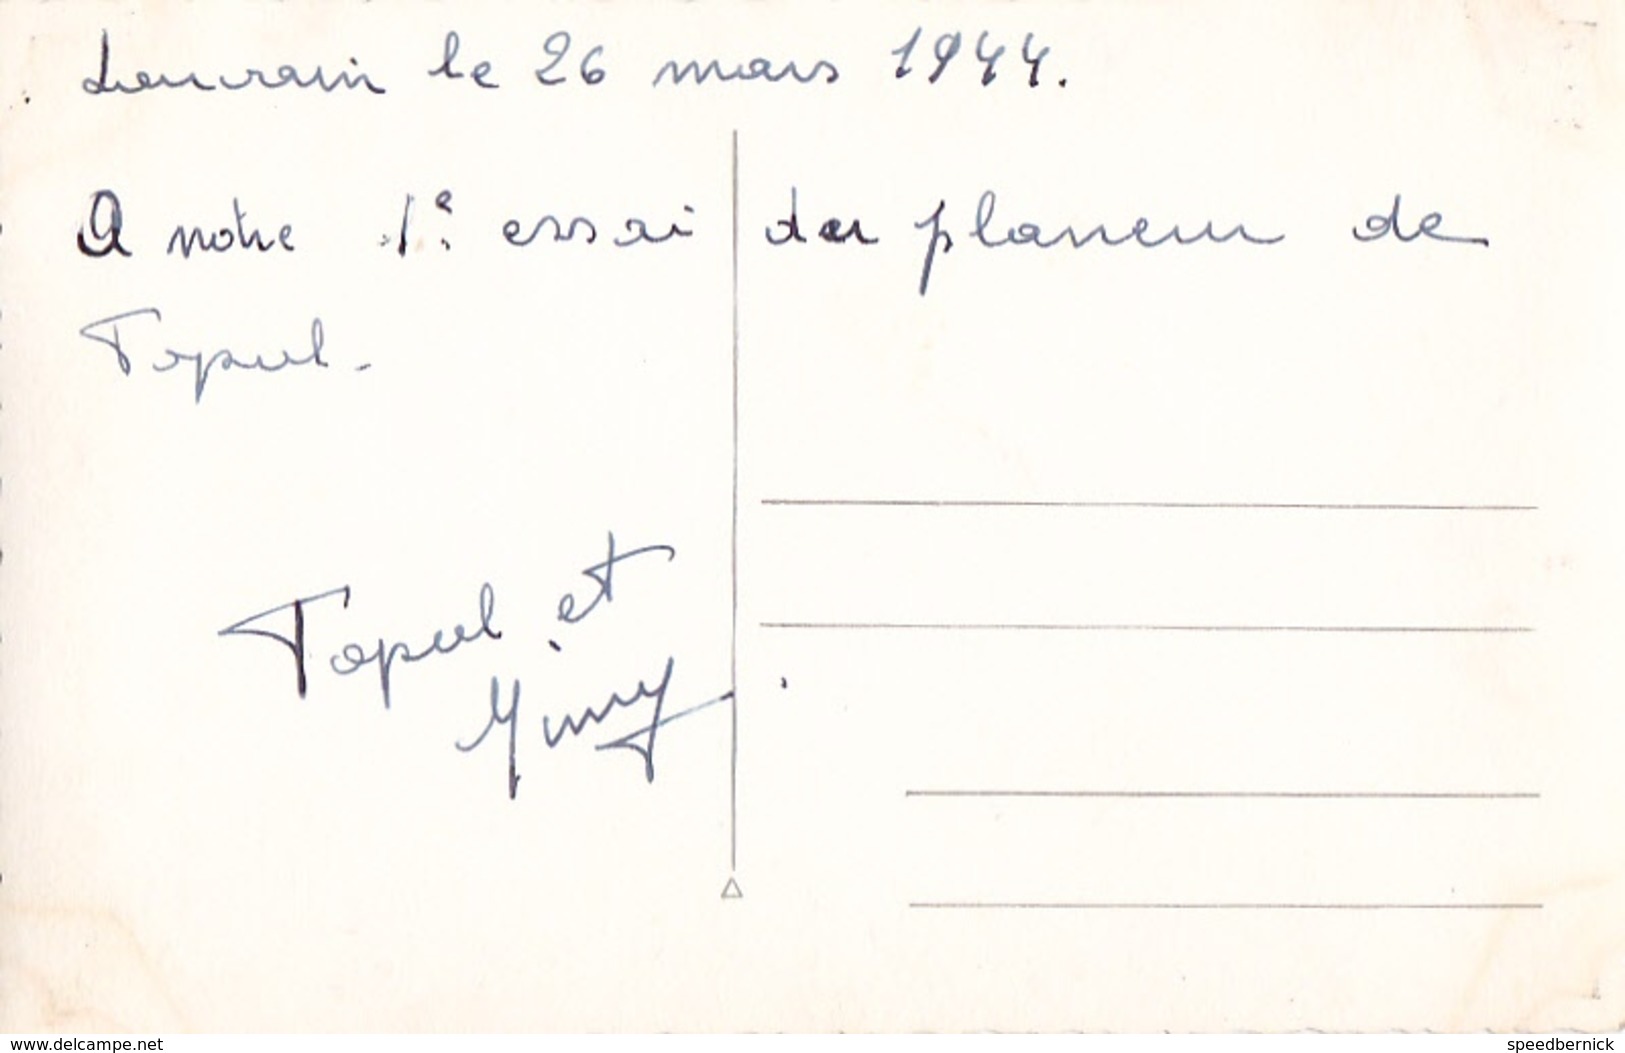 Louvain le 26 mars 1944.
A notre 1e essai du planeur de
Topul.
Topul et
Mimy.
www.delcampe.net
speedbernick